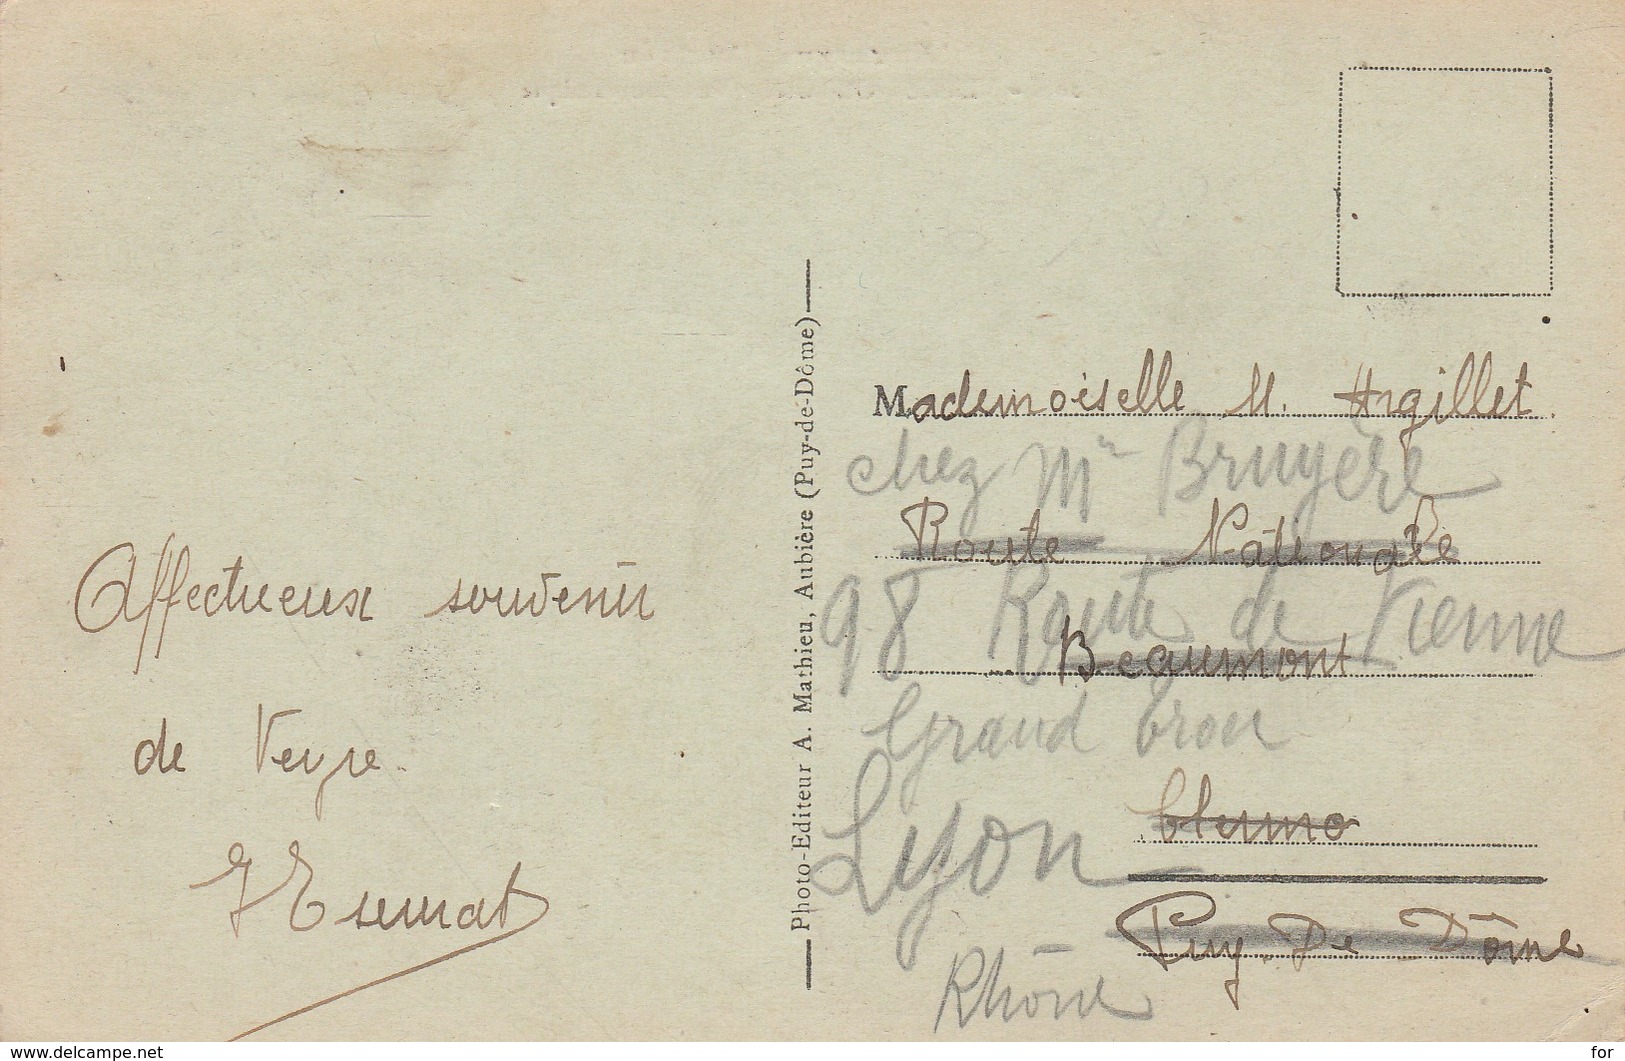 Affectueux souvenir
de Veyre
Photo-Editeur A. Mathieu, Aubière (Puy-de-Dôme)
Mademoiselle M. Argillet
chez Mr Bruyère
Route Nationale
98 Route de Vienne
Beaumont
Grand trou
Lyon
Puy De Dôme
Rhône
www.delcampe.net
for